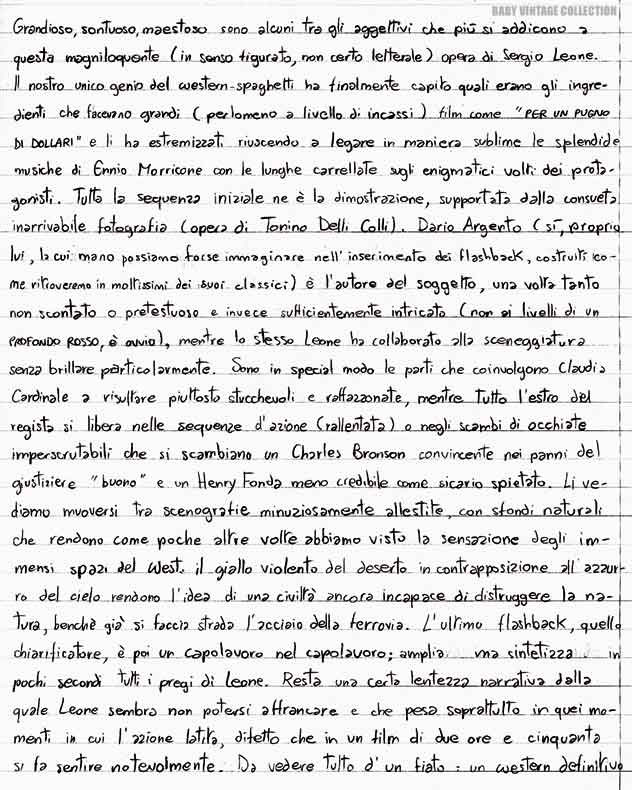 BABY VINTAGE COLLECTION
Grandioso, sontuoso, maestoso sono alcuni tra gli aggettivi che più si addicono a
questa magniloquente (in senso figurato, non certo letterale) opera di Sergio Leone.
Il nostro unico genio del western-spaghetti ha finalmente capito quali erano gli ingre-
dienti che facevano grandi (perlomeno a livello di incassi) film come "PER UN PUGNO
DI DOLLARI" e li ha estremizzati riuscendo a legare in maniera sublime le splendide
musiche di Ennio Morricone con le lunghe carrellate sugli enigmatici volti dei prota-
gonisti. Tutta la sequenza iniziale ne è la dimostrazione, supportata dalla consueta
inarrivabile fotografia (opera di Tonino Delli Colli). Dario Argento (sì, proprio
lui, la cui mano possiamo forse immaginare nell'inserimento dei flashback, costruiti co-
me ritroveremo in moltissimi dei suoi classici) è l'autore del soggetto, una volta tanto
non scontato o pretestuoso e invece sufficientemente intricato (non ai livelli di un
PROFONDO ROSSO, è ovvio), mentre lo stesso Leone ha collaborato alla sceneggiatura
senza brillare particolarmente. Sono in special modo le parti che coinvolgono Claudia
Cardinale a risultare piuttosto stucchevoli e raffazzonate, mentre tutto l'estro del
regista si libera nelle sequenze d'azione (rallentata) o negli scambi di occhiate
imperscrutabili che si scambiano un Charles Bronson convincente nei panni del
giustiziere "buono" e un Henry Fonda meno credibile come sicario spietato. Li ve-
diamo muoversi tra scenografie minuziosamente allestite, con sfondi naturali
che rendono come poche altre volte abbiamo visto la sensazione degli im-
mensi spazi del West. il giallo violento del deserto in contrapposizione all'azzur-
ro del cielo rendono l'idea di una civiltà ancora incapace di distruggere la na-
tura, benchè già si faccia strada l'acciaio della ferrovia. L'ultimo flashback, quello
chiarificatore, è poi un capolavoro nel capolavoro; amplia ma sintetizza in
pochi secondi tutti i pregi di Leone. Resta una certa lentezza narrativa dalla
quale Leone sembra non potersi affrancare e che pesa soprattutto in quei mo-
menti in cui l'azione latita, difetto che in un film di due ore e cinquanta
si fa sentire notevolmente. Da vedere tutto d'un fiato: un western definitivo